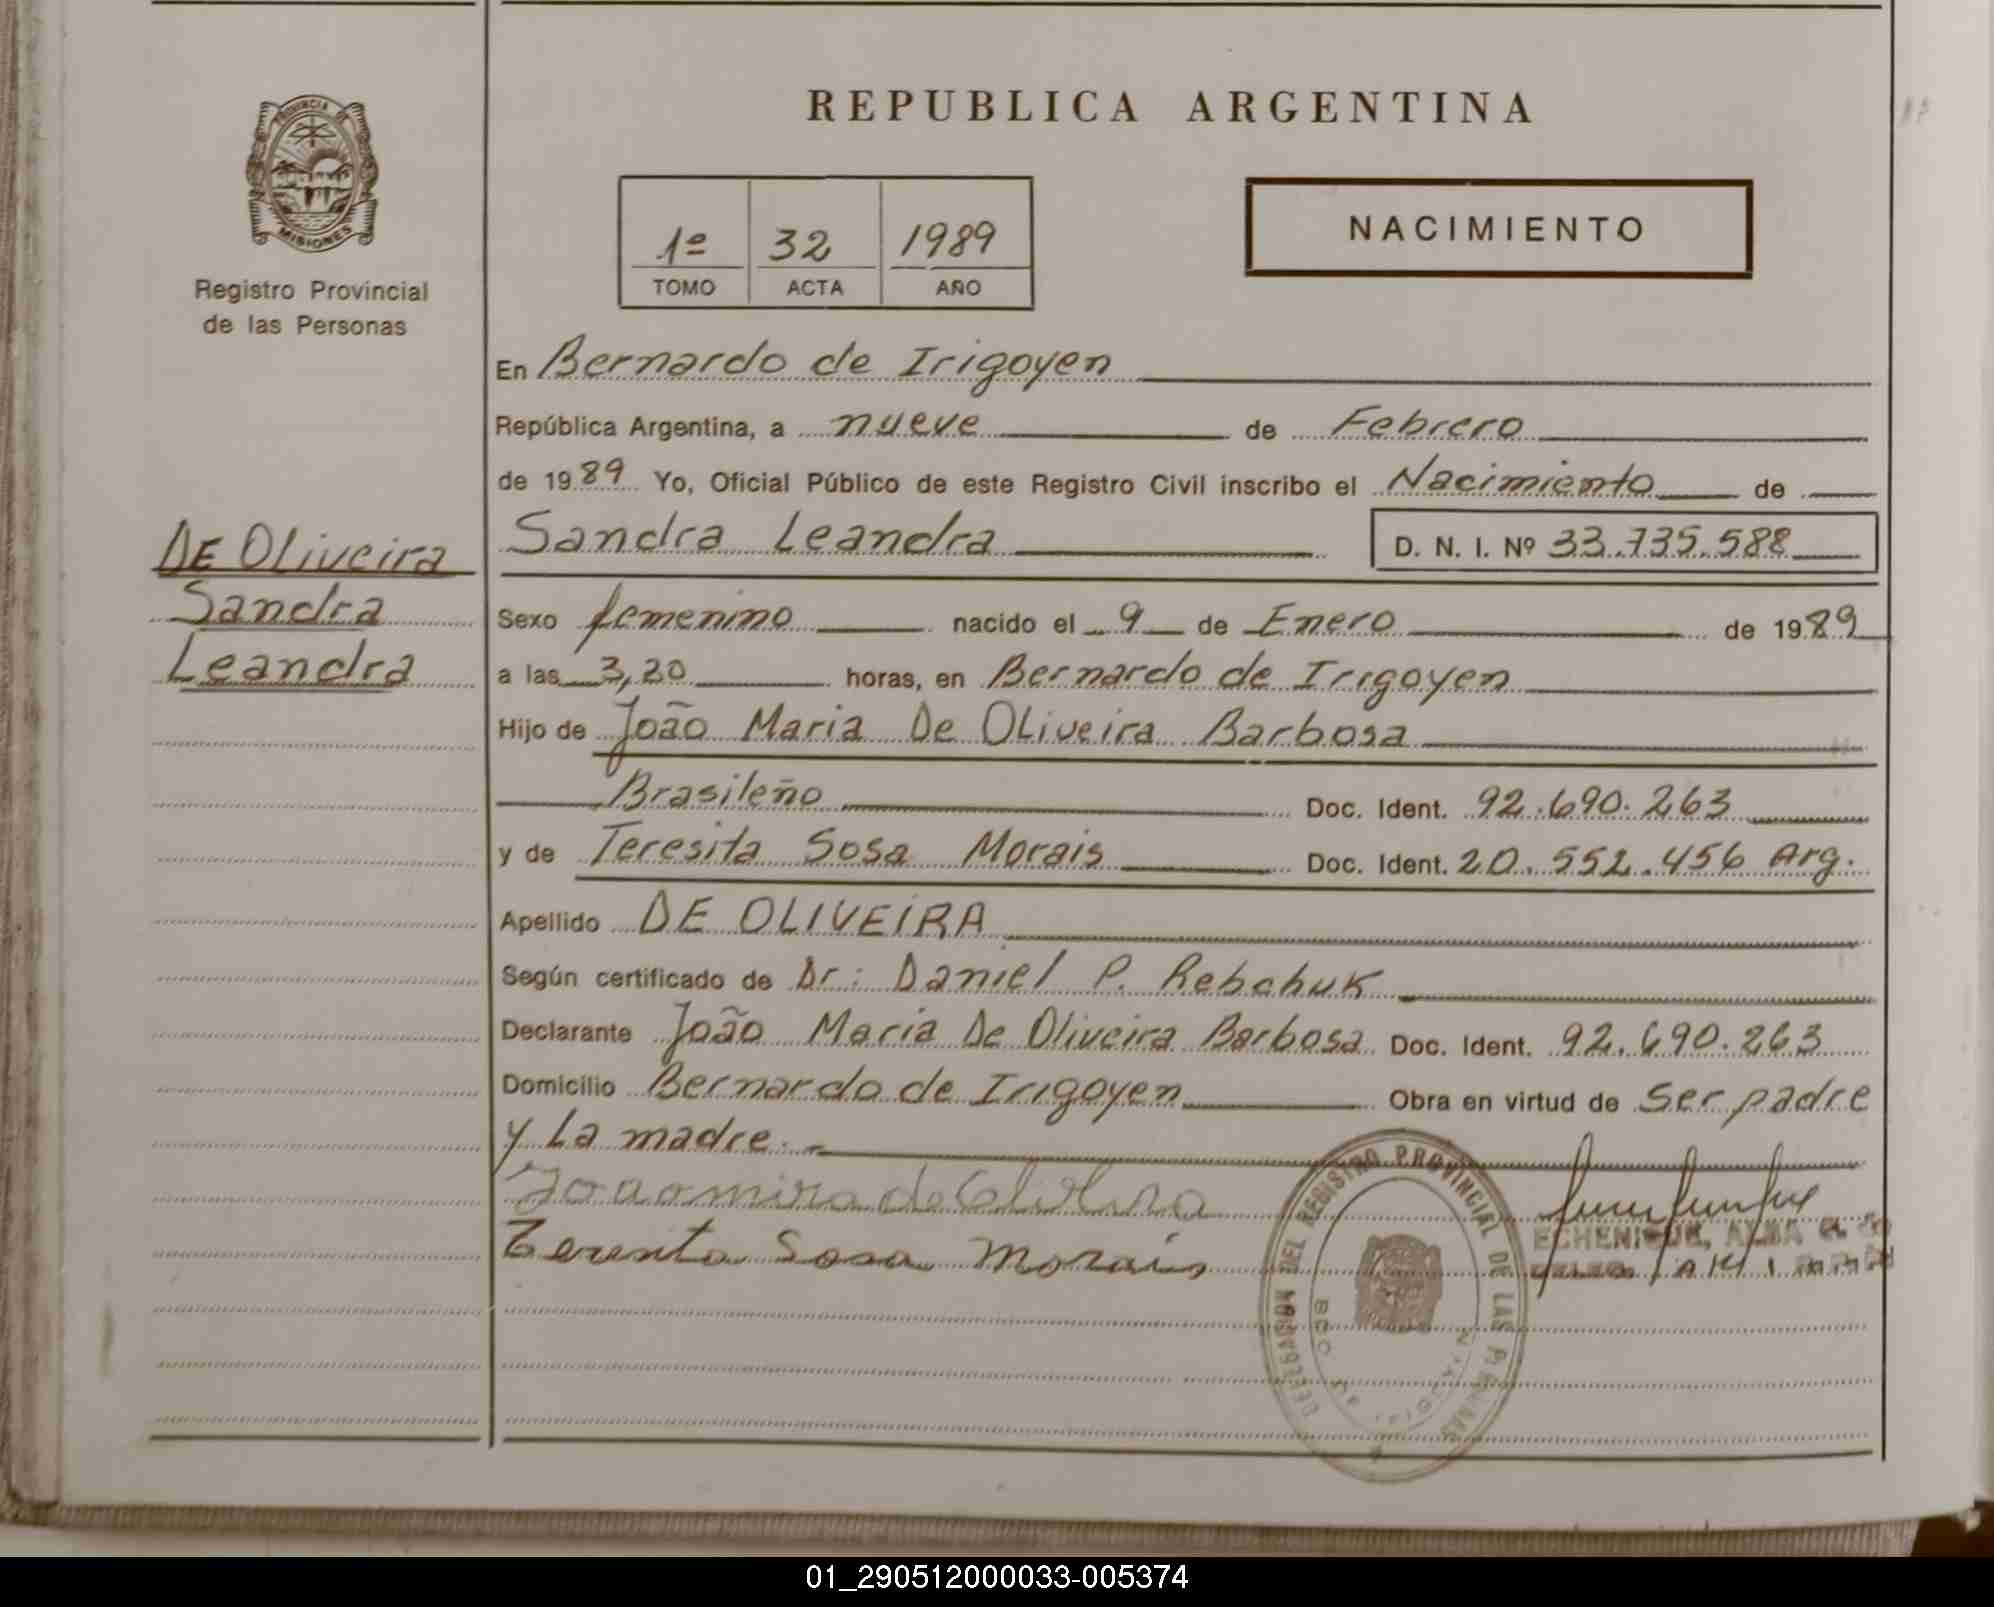 PROVINCIA DE
MISIONES
Registro Provincial
de las Personas
DE Oliveira
Sandra
Leandra
REPUBLICA ARGENTINA
1º 32 1989
TOMO ACTA AÑO
NACIMIENTO
En Bernardo de Irigoyen
República Argentina, a nueve de Febrero
de 1989 Yo, Oficial Público de este Registro Civil inscribo el Nacimiento de
Sandra Leandra D. N. I. Nº 33.735.588
Sexo femenino nacido el 9 de Enero de 1989
a las 3,20 horas, en Bernardo de Irigoyen
Hijo de João Maria De Oliveira Barbosa
Brasileño Doc. Ident. 92.690.263
y de Teresita Sosa Morais Doc. Ident. 20.552.456 Arg.
Apellido DE OLIVEIRA
Según certificado de Dr: Daniel P. Rebchuk
Declarante João Maria De Oliveira Barbosa Doc. Ident. 92.690.263
Domicilio Bernardo de Irigoyen Obra en virtud de Ser padre
y La madre.
Teresita Sosa Morais
DELEGACION DEL REGISTRO PROVINCIAL DE LAS PERSONAS
ECHENIQUE, ALBA
01_290512000033-005374